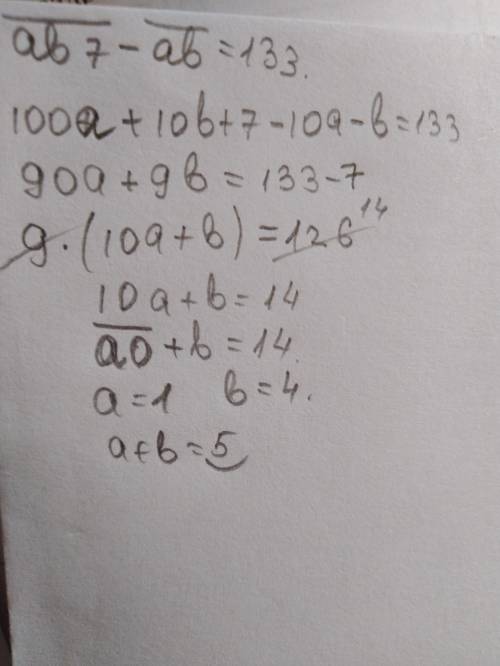 ab7 - ab = 133.
100a + 10b + 7 - 10a - b = 133
90a + 9b = 133 - 7
9 · (10a + b) = 126 14
10a + b = 14
a0 + b = 14.
a = 1 b = 4.
a + b = 5